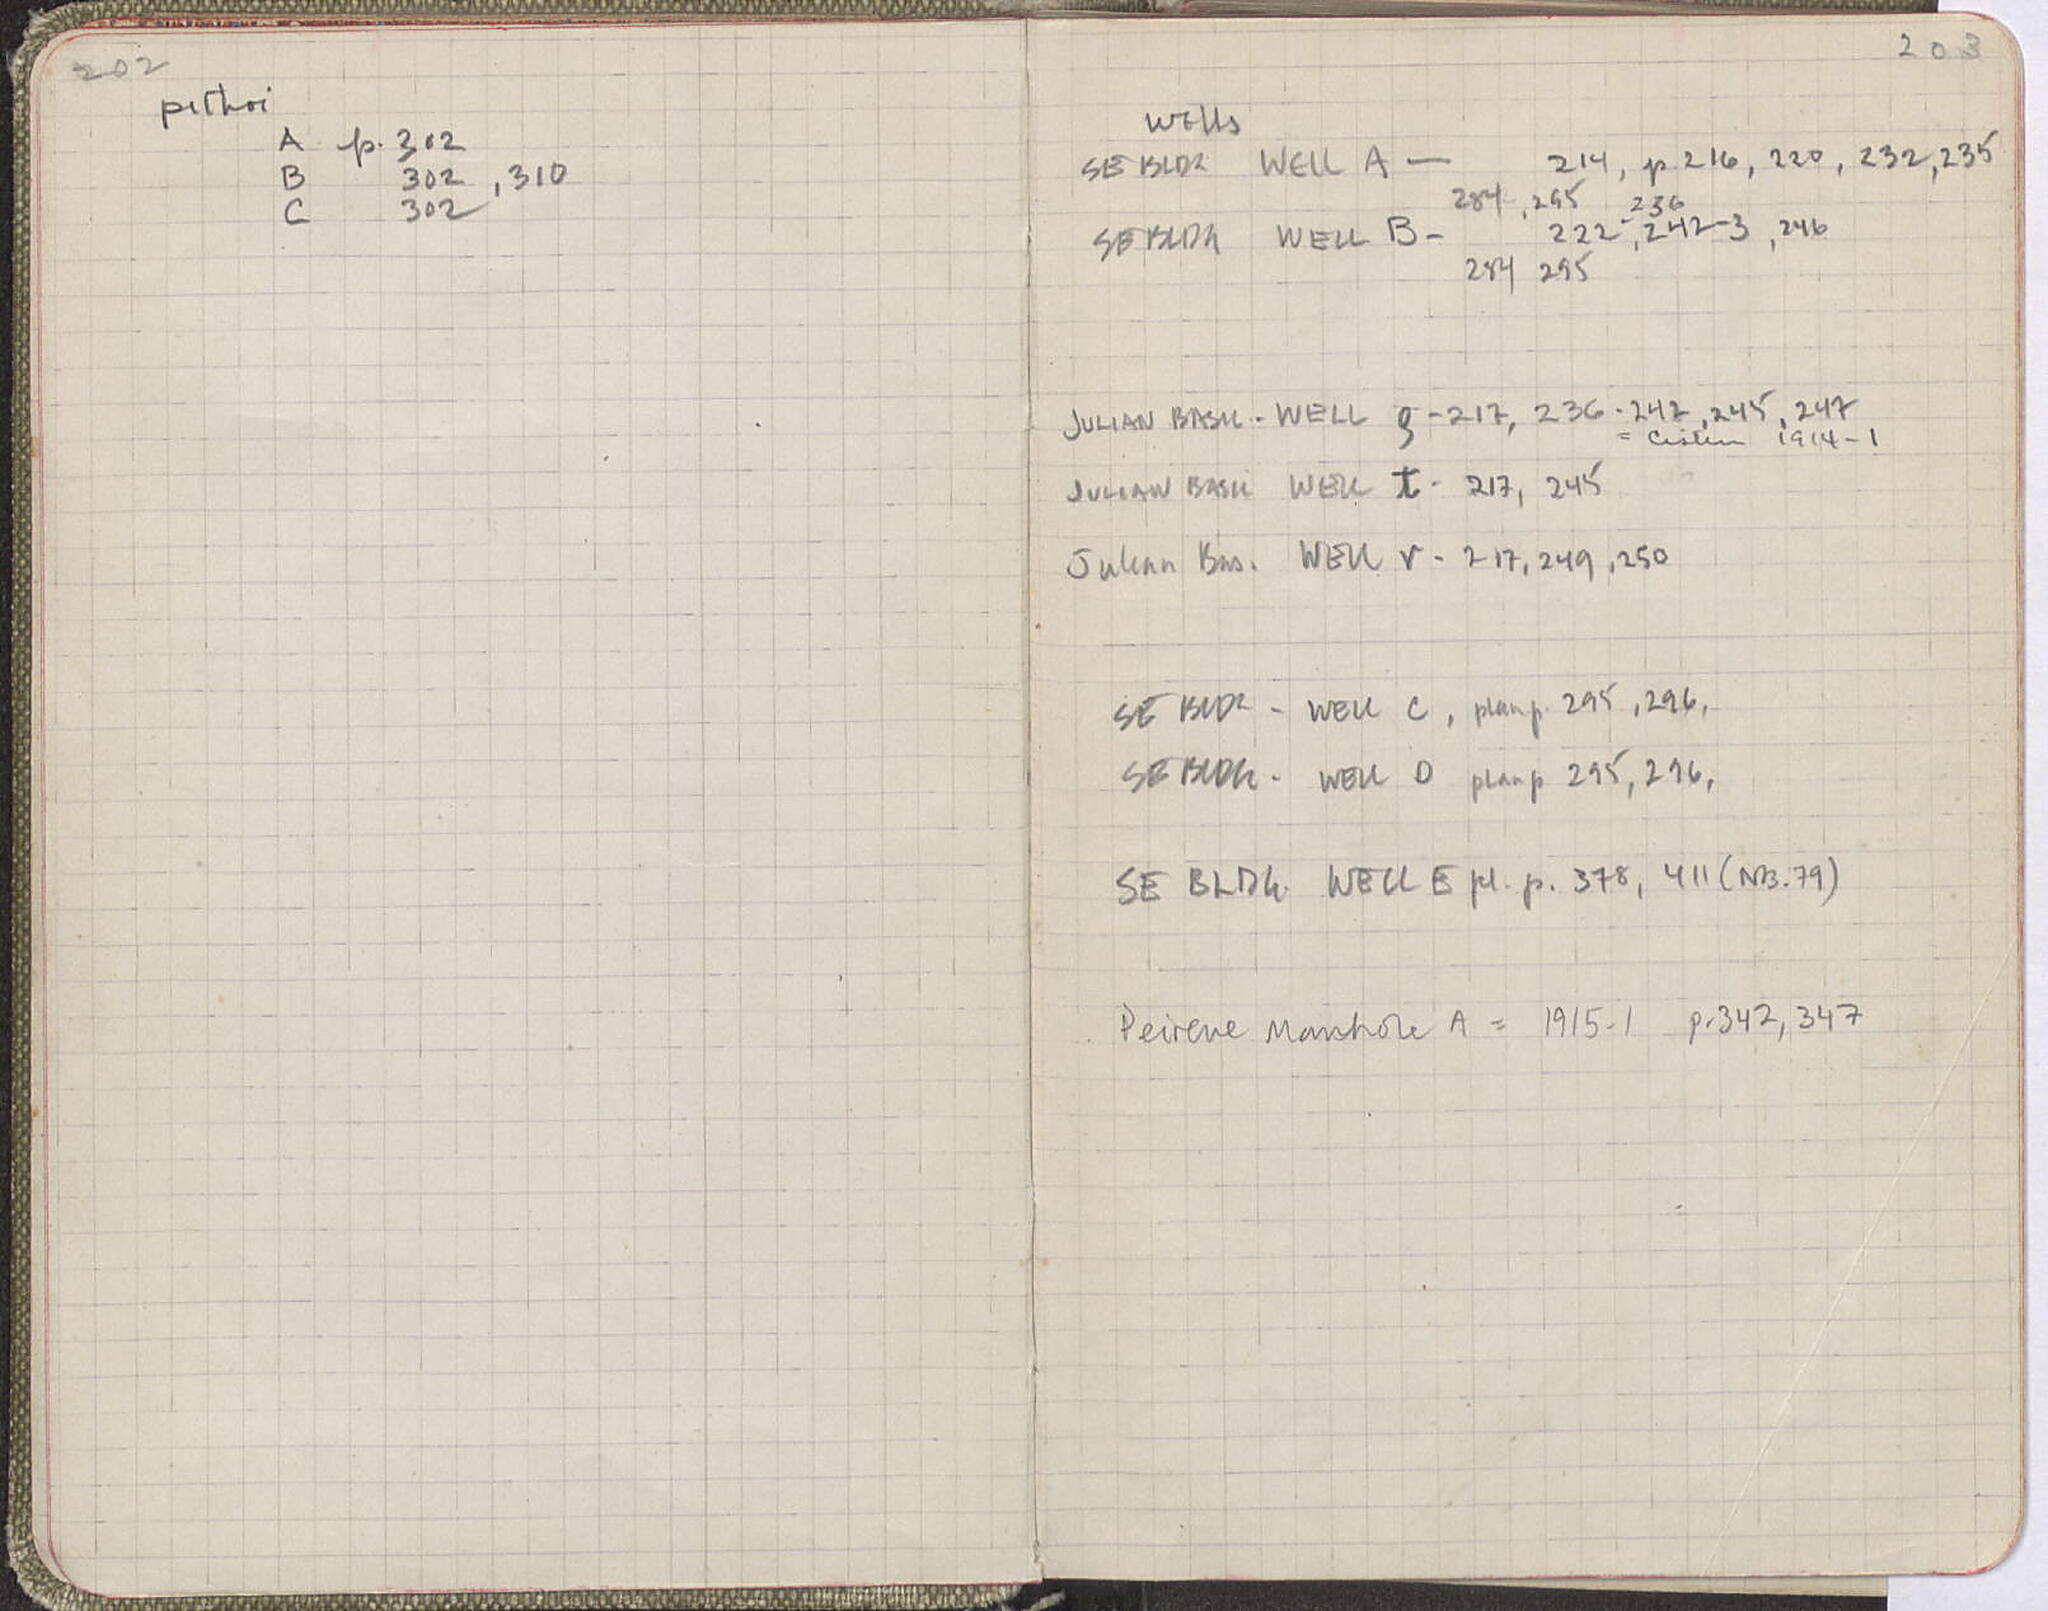 202
pithoi
A p. 302
B 302, 310
C 302
203
Wells
SE BLDG WELL A — 214, p 216, 220, 232, 235
284, 295 236
SE BLDG WELL B - 222, 242-3, 246
284 295
JULIAN BASIL. - WELL g - 217, 236 - 242, 245, 247
= Cistern 1914-1
JULIAN BASIL WELL t - 217, 245
Julian Bas. WELL r - 217, 249, 250
SE BLDG - WELL C, plan p. 295, 296,
SE BLDG. - WELL D plan p 295, 296,
SE BLDG. WELL E pl. p. 378, 411 (NB. 79)
Peirene Manhole A = 1915-1 p. 342, 347